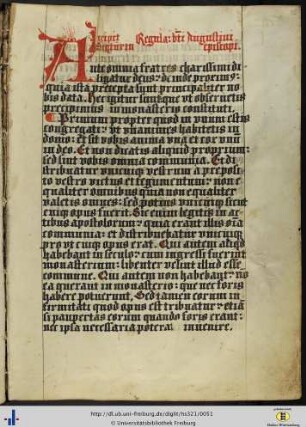 Regula: bti Augustini
episcopi.
Ante omnia fratres charissimi di
ligatur deus: deinde proximus:
quia ista precepta sunt principaliter no
bis data. Hec igitur sunt que ut obseruetis
precipimus in monasterio constituti.
Primum propter quod in unum estis
congregati: ut vnanimes habitetis in
domo: et sit vobis anima vna et cor vnū
in deo. Et non dicatis aliquid proprium:
sed sint vobis omnia communia. Et di
stribuatur vnicuiqz vestrum a preposi
to vestro victus et tegumentum: non e
qualiter omnibus quia non equaliter
valetis omnes: sed potius vnicuiqz sicut
cuiqz opus fuerit. Sic enim legitis in ac
tibus apostolorum: quia erant illis oīa
communia: et distribuebatur vnicuiqz
pro vt cuiqz opus erat. Qui autem aliqd
habebant in seculo: cum ingressi fuerint
monasterium: libenter velint illud esse
commune. Qui autem non habebant: nō
ea querant in monasterio: que nec foris
habere potuerunt. Sed tamen eorum in
firmitati quod opus est tribuatur: etiā
si paupertas eorum quando foris erant:
nec ipsa necessaria poterat inuenire.
http://dl.ub.uni-freiburg.de/diglit/hs321/0051
© Universitätsbibliothek Freiburg